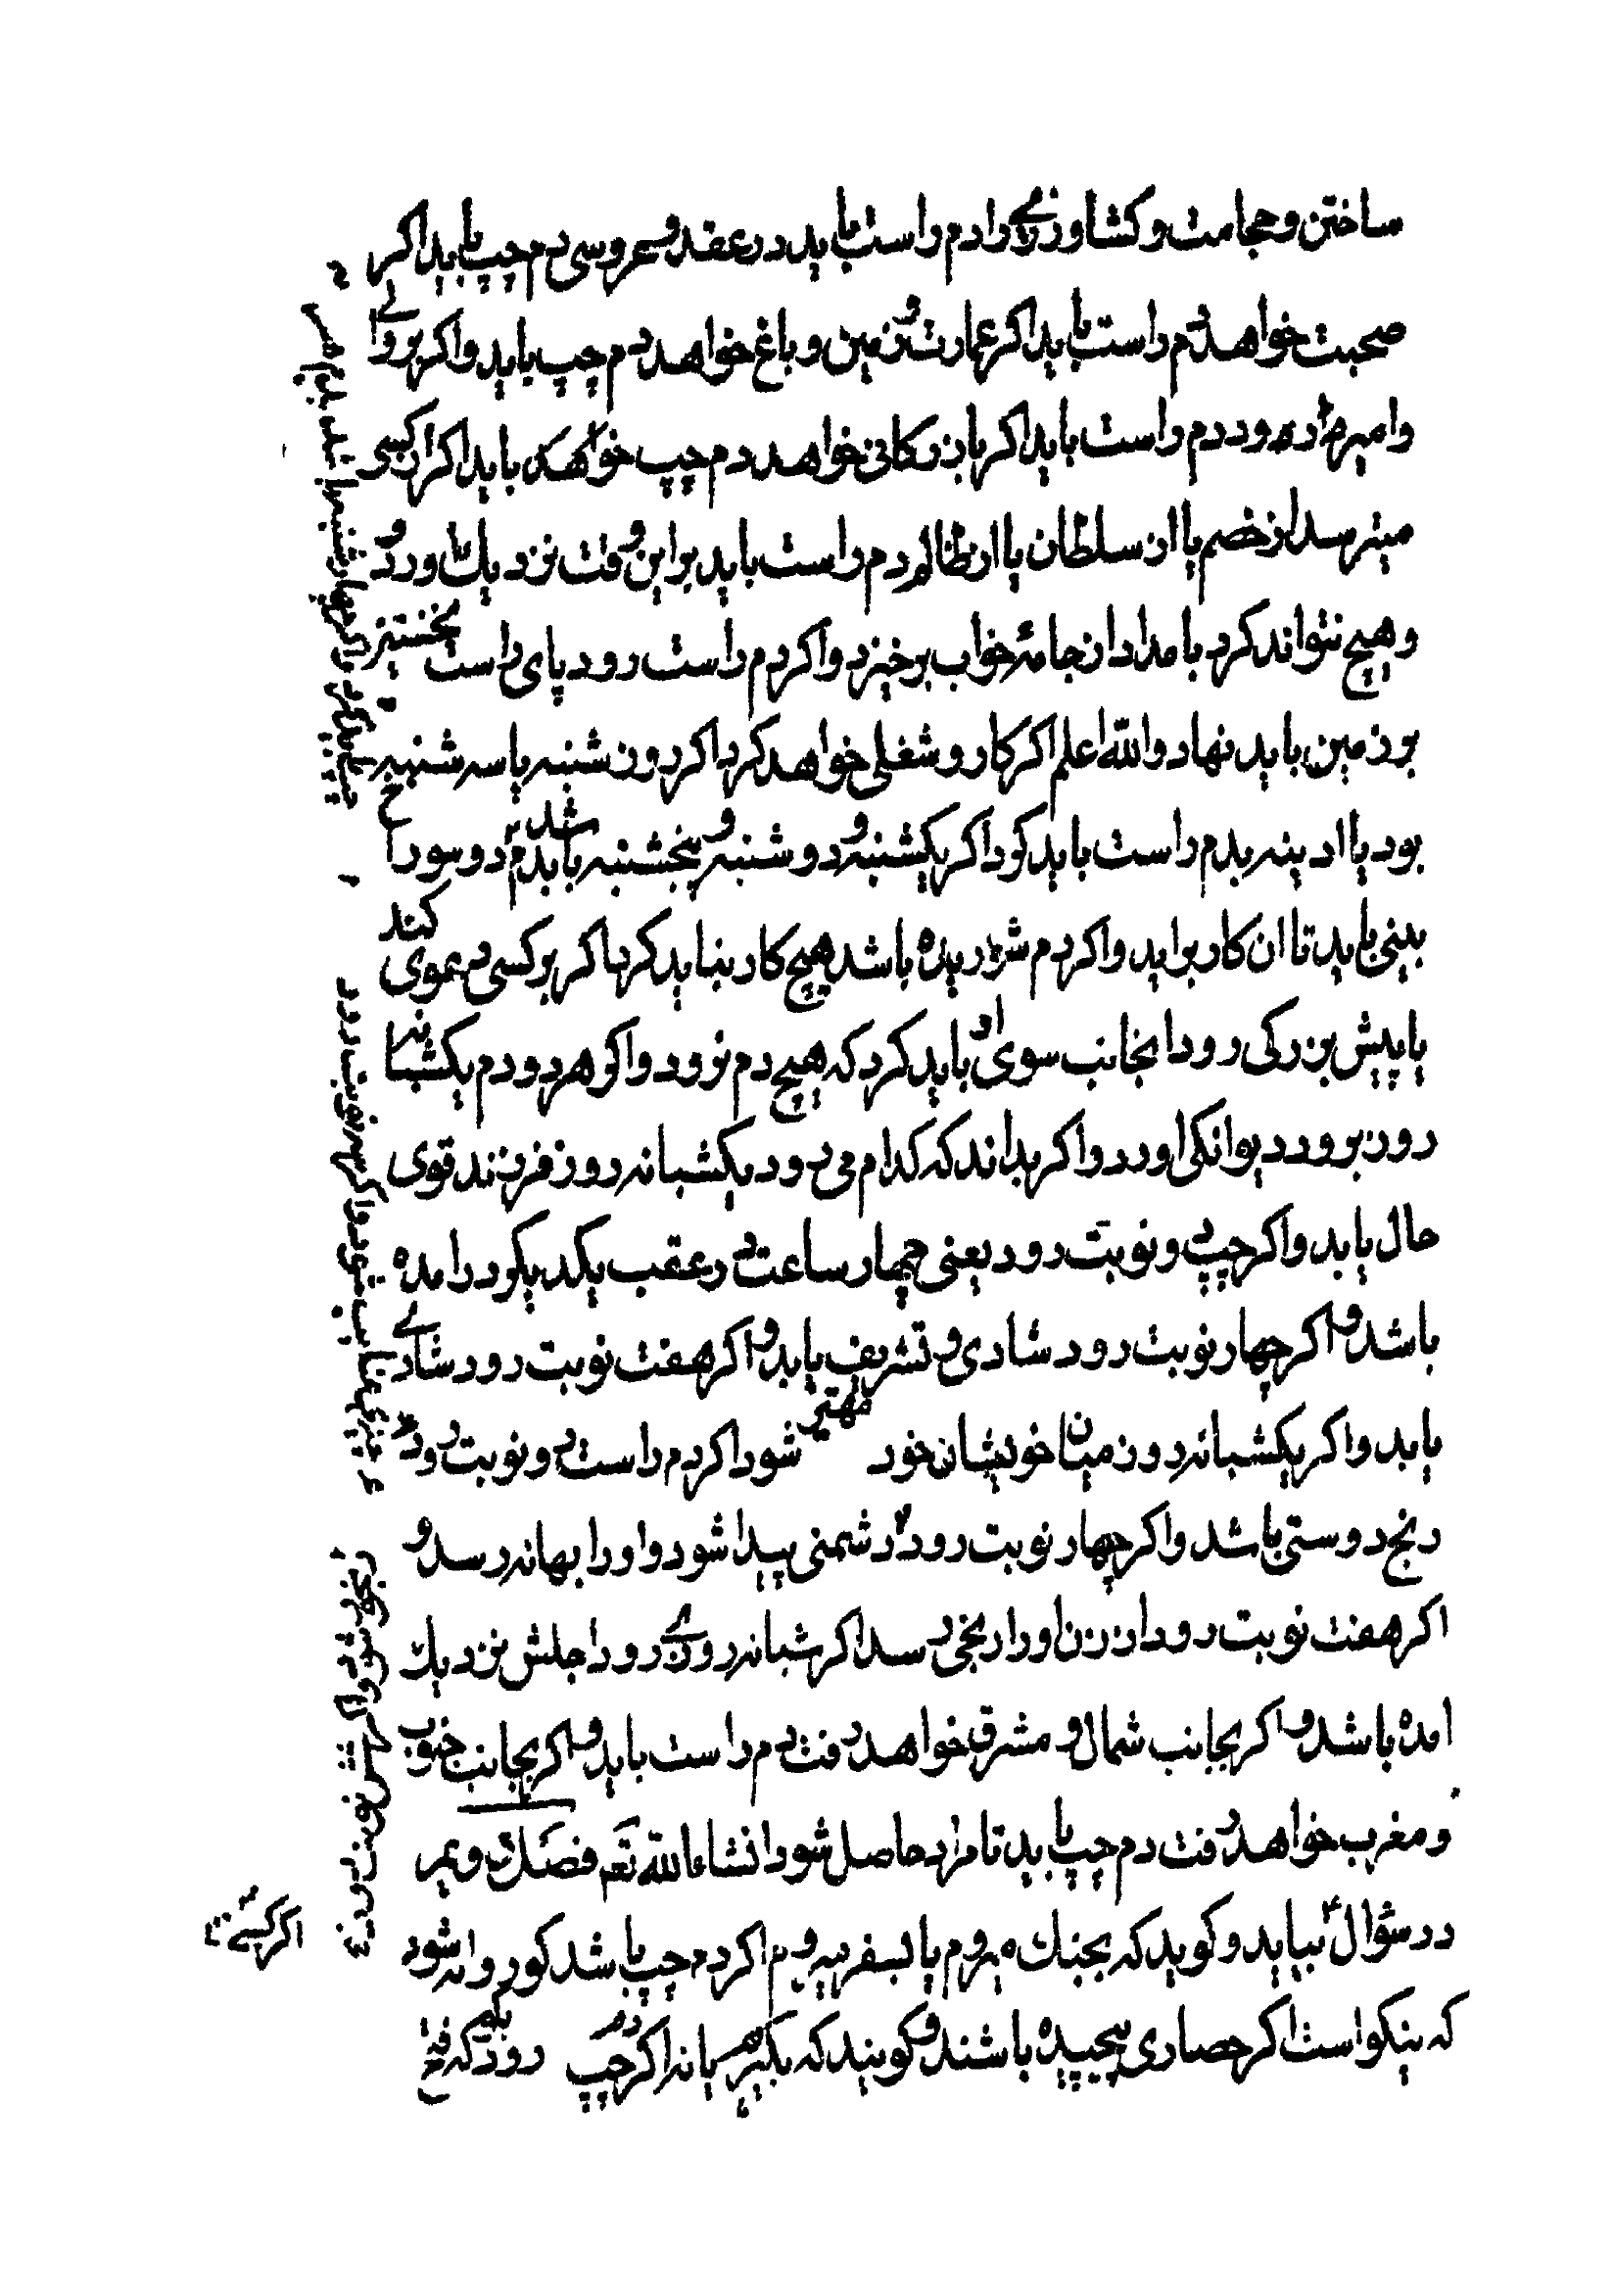 ساختن و حجامت و کشاورزی را دم راست باید در عقد و عروسی دم چپ باید اکر
صحبت خواهد دم راست باید اکر عمارت و زمین و باغ خواهد دم چپ باید و اکر بروالی
و امیر در رود دم راست باید اکر بازرکانی خواهد دم چپ خواهد باید اکر از کسی
میترسد از خصم یا از سلطان یا از ظالم دم راست باید براین وقت نزدیك او رود
و هیچ نتواند کرد بامداد از جامهٔ خواب برخیزد و اکر دم راست رود پای راست نخستین
بر زمین باید نهاد والله اعلم اکر کار و شغلی خواهد کرد اکر روز شنبه یا سه شنبه
بود یا ادینه بدم راست باید کرد اکر یکشنبه و دوشنبه و پنجشنبه باشد بدم دو سوراخ
بینی باید تا ان کار براید و اکر دم شوریده باشد هیچ کار نباید کرد اکر بر کسی دعوی کند
یا پیش بزرکی رود انجانب سوی او باید کرد که هیچ دم نرود و اکر هر دو دم یکشبانه
روز برود دیوانکی اورد و اکر بداند که کدام می رود یکشبانه روز فرزند قوی
حال یابد و اکر چپ دو نوبت رود یعنی چهار ساعت در عقب یکدیکر درامده
باشد و اکر چهار نوبت رود شادی و تشریف یابد و اکر هفت نوبت رود شادی
یابد و اکر یکشبانه روز میان خویشان خود مهتر شود اکر دم راست دو نوبت رود
رنج دوستی باشد و اکر چهار نوبت رود دشمنی پیدا شود و او را بهانه رسد و
اکر هفت نوبت رود از زن او را رنجی رسد اکر شبانه روزی رود اجلش نزدیك
امده باشد و اکر بجانب شمال و مشرق خواهد رفت دم راست باید و اکر بجانب جنوب
و مغرب خواهد رفت دم چپ باید تا مراد حاصل شود انشاءالله تعم فصل
در سؤال بیاید و کوید که بجنك میروم یا بسفر میروم اکر دم چپ باشد کو روانه شود
که نیکو است اکر حصاری پیچیده باشند و کویند که بکیریم یا نه اکر دم چپ رود بکو که فتح
اکر کسی